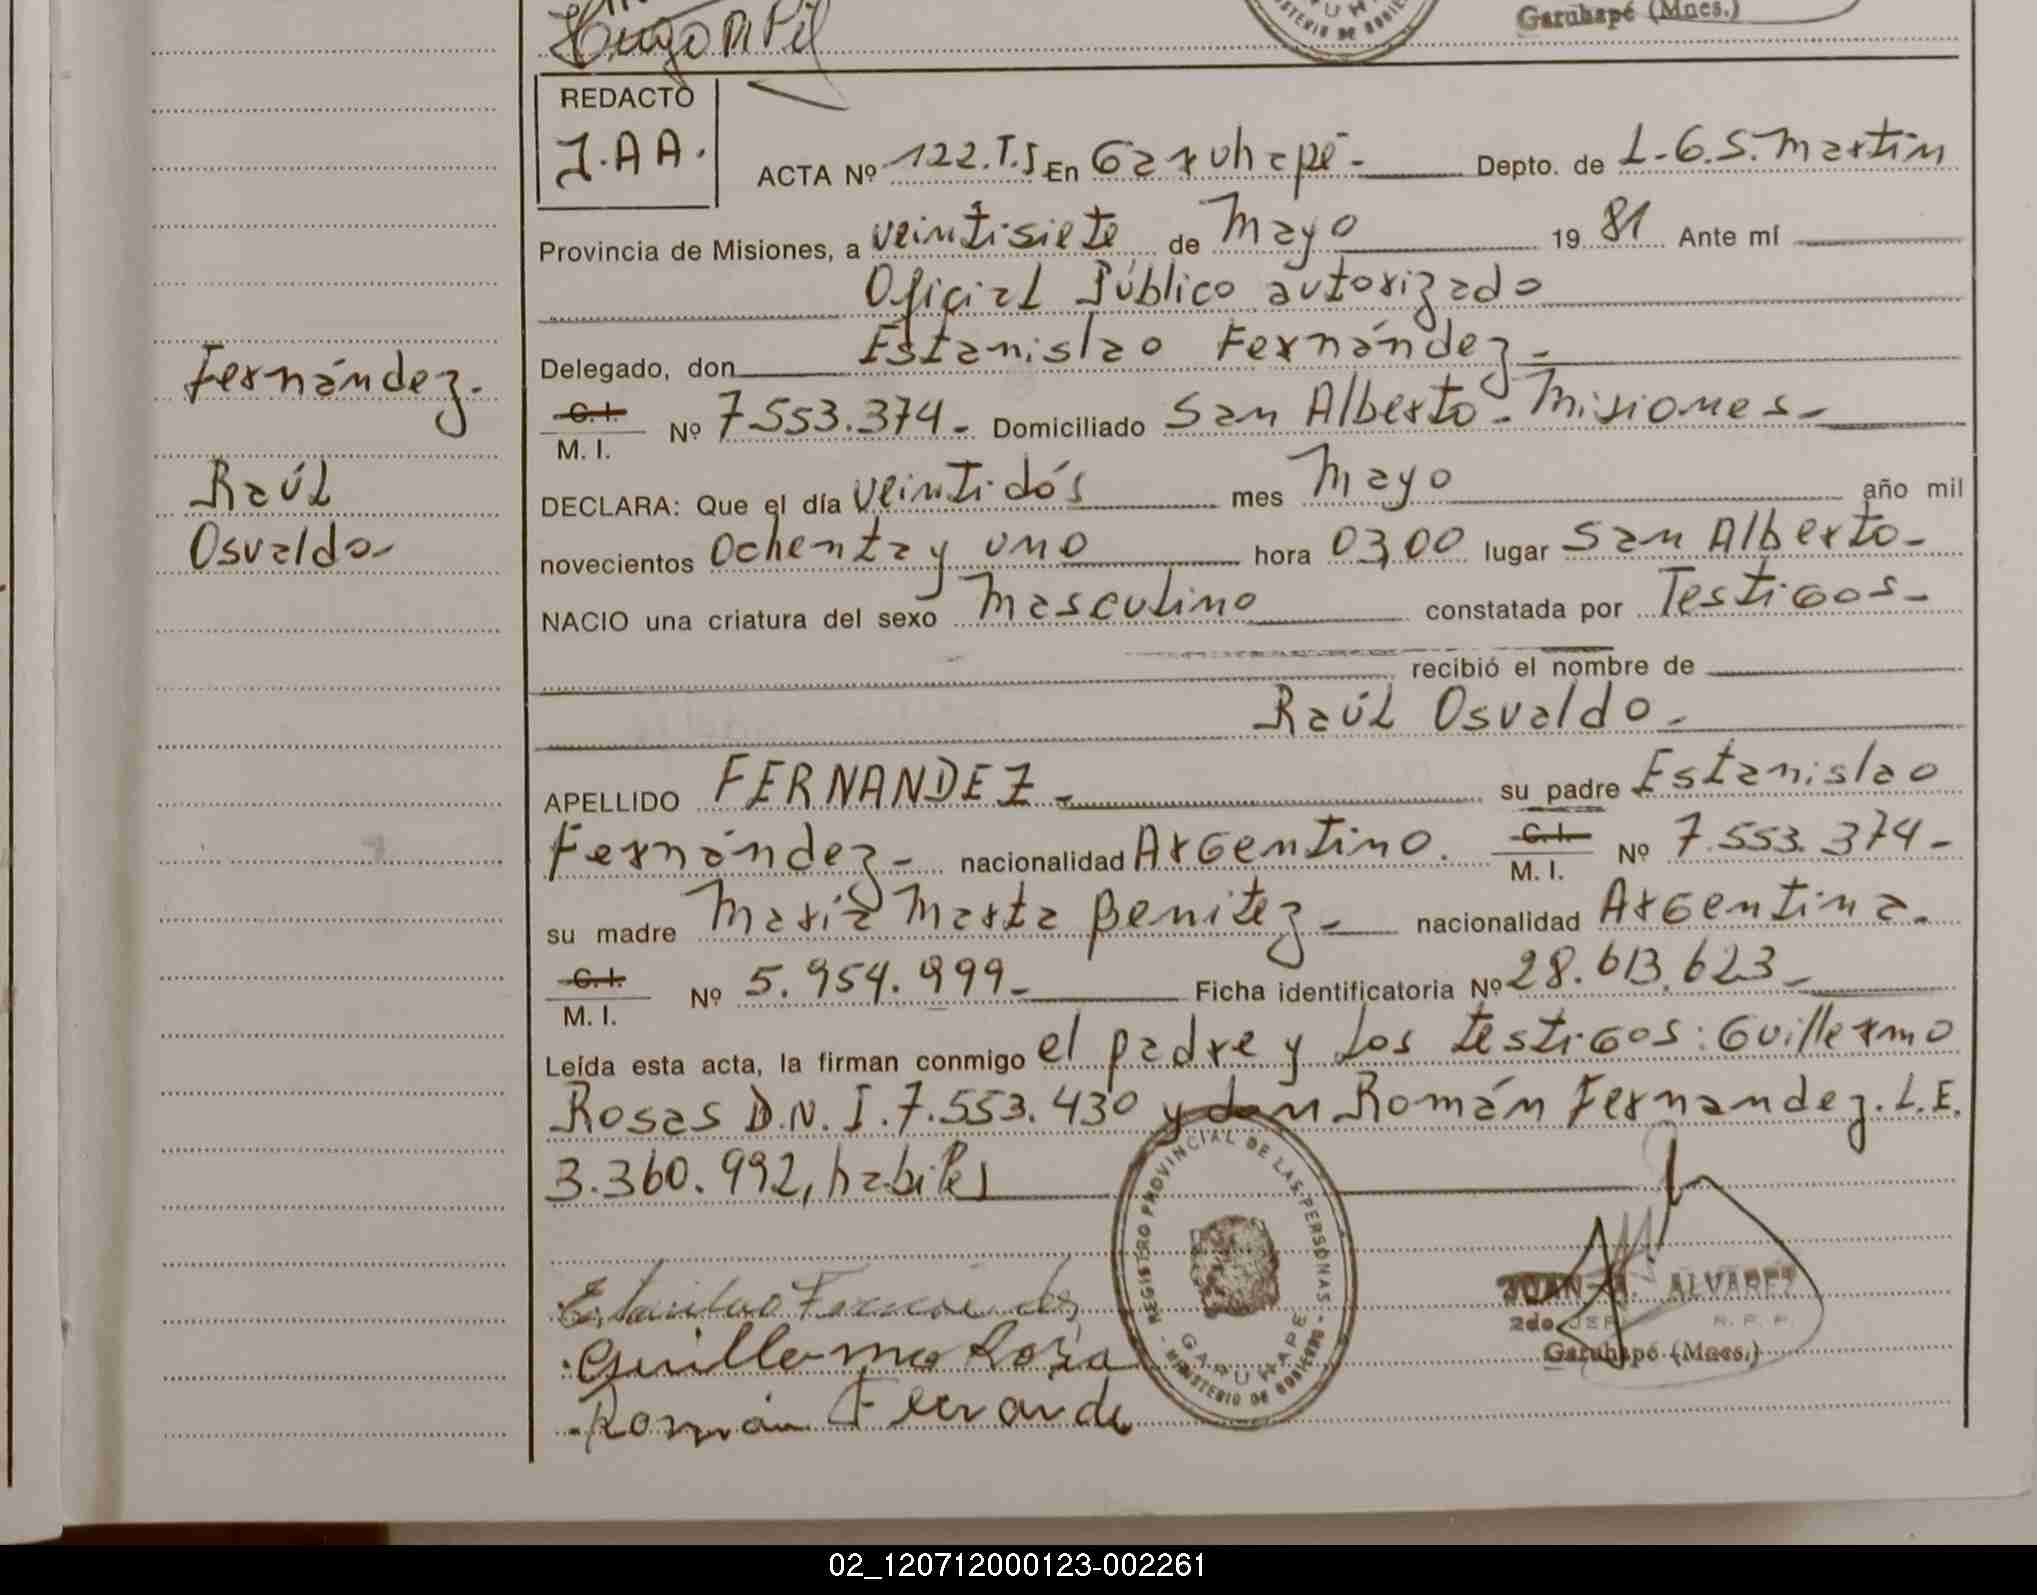 Hugo
Garuhapé (Mnes.)
REDACTÓ
J.A A.
ACTA Nº 122.T.I En Garuhapé- Depto. de L.G.S. Martin
Provincia de Misiones, a veintisiete de Mayo 19 81 Ante mí
Oficial Público autorizado
Delegado, don Estanislao Fernández-
C.I. M.I. Nº 7.553.374- Domiciliado San Alberto- Misiones-
DECLARA: Que el día veintidós mes Mayo año mil
novecientos Ochenta y uno hora 03,00 lugar San Alberto-
NACIO una criatura del sexo Masculino constatada por Testigos-
recibió el nombre de
Raúl Osvaldo-
APELLIDO FERNANDEZ- su padre Estanislao
Fernández- nacionalidad Argentino. C.I. M.I. Nº 7.553.374-
su madre María Marta Benitez- nacionalidad Argentina.
C.I. M.I. Nº 5.954.999- Ficha identificatoria Nº 28.613.623-
Leída esta acta, la firman conmigo el padre y los testigos: Guillermo
Rosas D.N.I. 7.553.430 y don Román Fernandez. L.E.
3.360.992, habiles
Fernández-
Raúl
Osvaldo-
REGISTRO PROVINCIAL DE LAS PERSONAS
GARUHAPE
MINISTERIO DE GOBIERNO
Estanislao Fernandez
Guillermo Rosa
Román Fernande
JUAN A. ALVAREZ
2do. JEFE R.P.P.
Garuhapé (Mnes.)
02_120712000123-002261